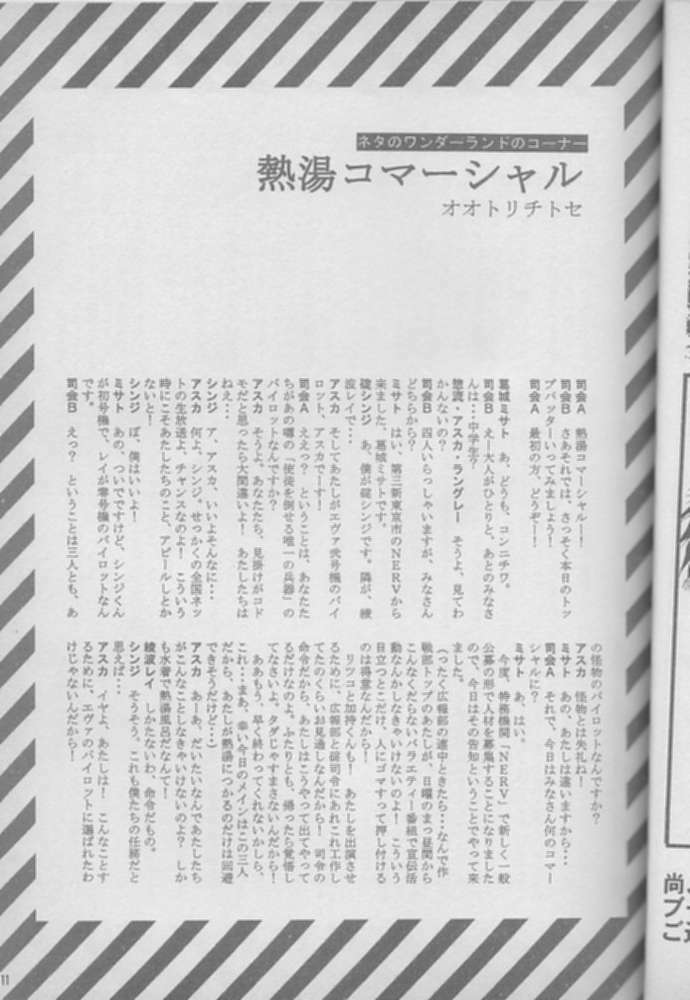 ネタのワンダーランドのコーナー
熱湯コマーシャル
オオトリチトセ
司会A 熱湯コマーシャル!!
司会B さあそれでは、さっそく本日のトッ
プバッターいってみましょう!
司会A 最初の方、どうぞー!!
葛城ミサト あ、どうも、コンニチワ。
司会B えー大人がひとりと、あとのみなさ
んは・・・中学生?
惣流・アスカ・ラングレー そうよ、見てわ
かんないの?
司会B 四人いらっしゃいますが、みなさん
どちらから?
ミサト はい、第三新東京市のNERVから
来ました、葛城ミサトです。
碇シンジ あ、僕が碇シンジです。隣が、綾
波レイで・・・
アスカ そしてあたしがエヴァ弐号機のパイ
ロット、アスカでーす!
司会A ええっ? ということは、あなたた
ちがあの噂の「使徒を倒せる唯一の兵器」の
パイロットなんですか?
アスカ そうよ、あなたたち、見掛けがコド
モだと思ったら大間違いよ! あたしたちは
ねえ・・・
シンジ ア、アスカ、いいよそんなに・・・
アスカ 何よ、シンジ。せっかくの全国ネッ
トの生放送よ、チャンスなのよ! こういう
時にこそあたしたちのこと、アピールしとか
ないと!
シンジ ぼ、僕はいいよ!
ミサト あの、ついでですけど、シンジくん
が初号機で、レイが零号機のパイロットなん
です。
司会B えっ? ということは三人とも、あ
の怪物のパイロットなんですか?
アスカ 怪物とは失礼ね!
ミサト あの、あたしは違いますから・・・
司会A それで、今日はみなさん何のコマー
シャルに?
ミサト あ、はい。
今度、特務機関「NERV」で新しく一般
公募の形で人材を募集することになりました
ので、今日はその告知ということでやって来
ました。
(ったく広報部の連中ときたら・・・なんで作
戦部トップのあたしが、日曜のまっ昼間から
こんなくだらないバラエティー番組で宣伝活
動なんかしなきゃいけないのよ! こういう
目立つとこだけ、人にゴマすって押し付ける
のは得意なんだから!
リツコと加持くんも! あたしを出演させ
るために、広報部と碇司令にあれこれ工作し
てたのくらいお見通しなんだから! 司令の
命令だから、あたしはこうやって出てやって
るだけなのよ。ふたりとも、帰ったら覚悟し
てなさいよ、タダじゃすまさないんだから!
ああもう、早く終わってくれないかしら、
これ・・・まあ、幸い今日のメインはこの三人
だから、あたしが熱湯につかるのだけは回避
できそうだけど・・・)
アスカ あーあ、だいたいなんであたしたち
がこんなことしなきゃいけないのよ? しか
も水着で熱湯風呂だなんて!
綾波レイ しかたないわ、命令だもの。
シンジ そうそう。これも僕たちの任務だと
思えば・・・
アスカ イヤよ、あたしは! こんなことす
るために、エヴァのパイロットに選ばれたわ
けじゃないんだから!
11